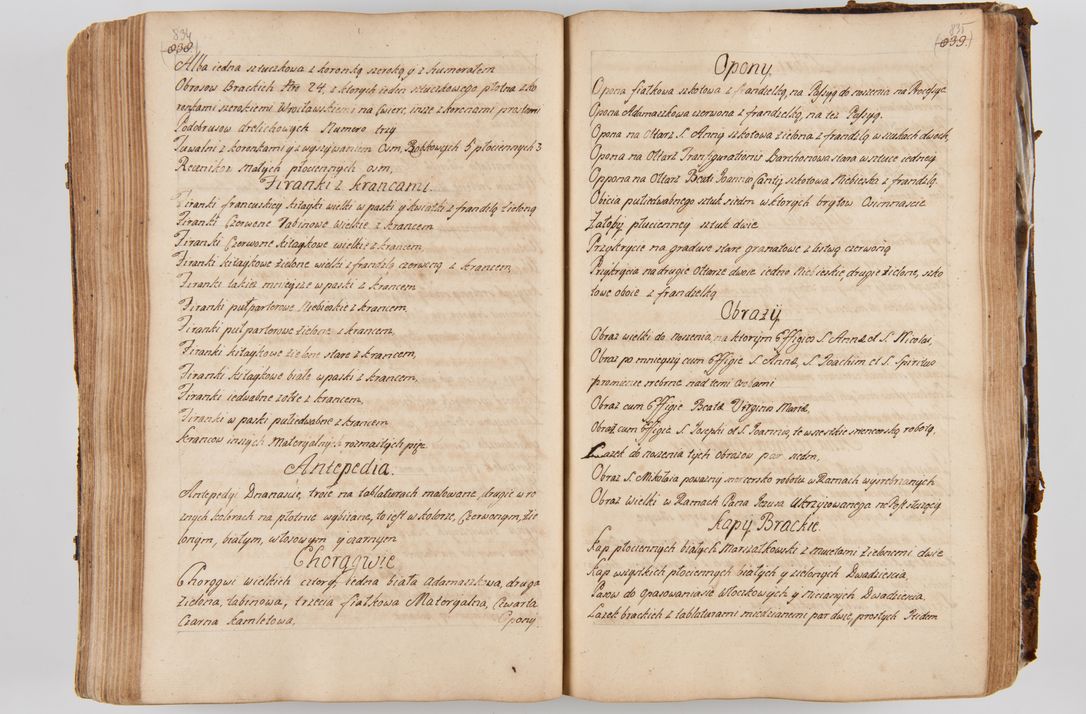 834
(838)
Alba iedna sztuczkowa z koronką szeroką y z humerałem
Obrusow Brackich Nro 24, z ktorych ieden sztuczkowego płotna z ko
ronkami szerokiemi Wrocławskiemi na ćwierć, insze z koronami prostemi
Podobrusow drelichowych Numero trzy
Tuwalni z koronkami y z wyszywaniem Osm, Bąkowych 5 płociennych 3
Ręcznikow małych płociennych osm,
Firanki z krancami.
Firanki francuskiey kitayki wielki w paski y kwiatki z frandzlą zieloną
Firanki Czerwone Tabinowe wielkie z krancem
Firanki Czerwone kitaykowe wielkie z krancem,
Firanki kitaykowe zielone wielki z frandzlą czerwoną z krancem,
Firanki takież mnieysze w paski z krancem
Firanki pułparterowe Niebieskie z krancem,
Firanki pułparterowe zielone z krancem,
Firanki kitaykowe zielone stare z krancem,
Firanki kitaykowe białe w paski z krancem,
Firanki iedwabne zołte z krancem,
Firanki w paski pułiedwabne z krancem,
Krancow inszych Materyalnych rozmaitych pięć
Antepedia.
Antepedyi Dnanaście, troie na tablaturach malowane, drugie w ro
znych kolorach na płotnie wybiiane, to iest w kolorze, Czerwonym, Zie
lonym, białym, włosowym y czarnym
Chorągwie
Chorągwi wielkich cztery, iedna biała Adamaszkowa, druga
Zielona, tabinowa, trzecia fiałkowa Materyalna, Czwarta
Czarna kamletowa,
Opony
835
(839)
Opony,
Opona fiałkowa szkotowa z frandzelką, na Passyą do noszenia na Processye
Opona Adamaszkowa czerwona z frandzelką, na też Passyą.
Opona na Ołtarz S. Anny szkotowa zielona z frandzlą w sztukach dwoch,
Opona na Ołtarz Transfigurationis Barchonowa stara w sztuce iedney
Oppona na Ołtarz Beati Joannis Cantij szkotowa Niebieska z frandzlą.
Obicia pułiedwabnego sztuk siedm w ktorych brytow Osimnaście
Załoby płucienney sztuk dwie
Przykrycie na graduse stare granatowe z listwą czerwoną
Przykrycia na drugie Ołtarze dwoie iedno Niebieskie, drugie Zielone, szko
towe oboie z frandzelką
Obrazy
Obraz wielki do noszenia, na ktorym Effigies S. Annæ et S. Nicolai,
Obraz po mnieyszy cum Effigie S. Annæ, S. Joachim et S. Spiritus
promienie srebrne nad temi osobami
Obraz cum Effigie Beatæ Virginis Mariæ,
Obraz cum Effigie S. Josephi et S. Joannis, te wszystkie snicerską robotą,
Lazek do noszenia tych Obrazow par siedm,
Obraz S. Mikołaia powazny snicersko roboty w Ramach wysrebrzanych
Obraz Wielki w Ramach Pana Jezusa Ukrzyżowanego na Pokost łożący
Kapy Brackie
Kap płociennych białych Marszałkowski z mucetami zielonemi dwie
Kap wszystkich płociennych białych y zielonych Dwadzieścia,
Pasow do opasowania się włoczkowych y nicianych Dwadzieścia
Lazek brackich z tablaturami miedzianemi par dwie, prostych siedm